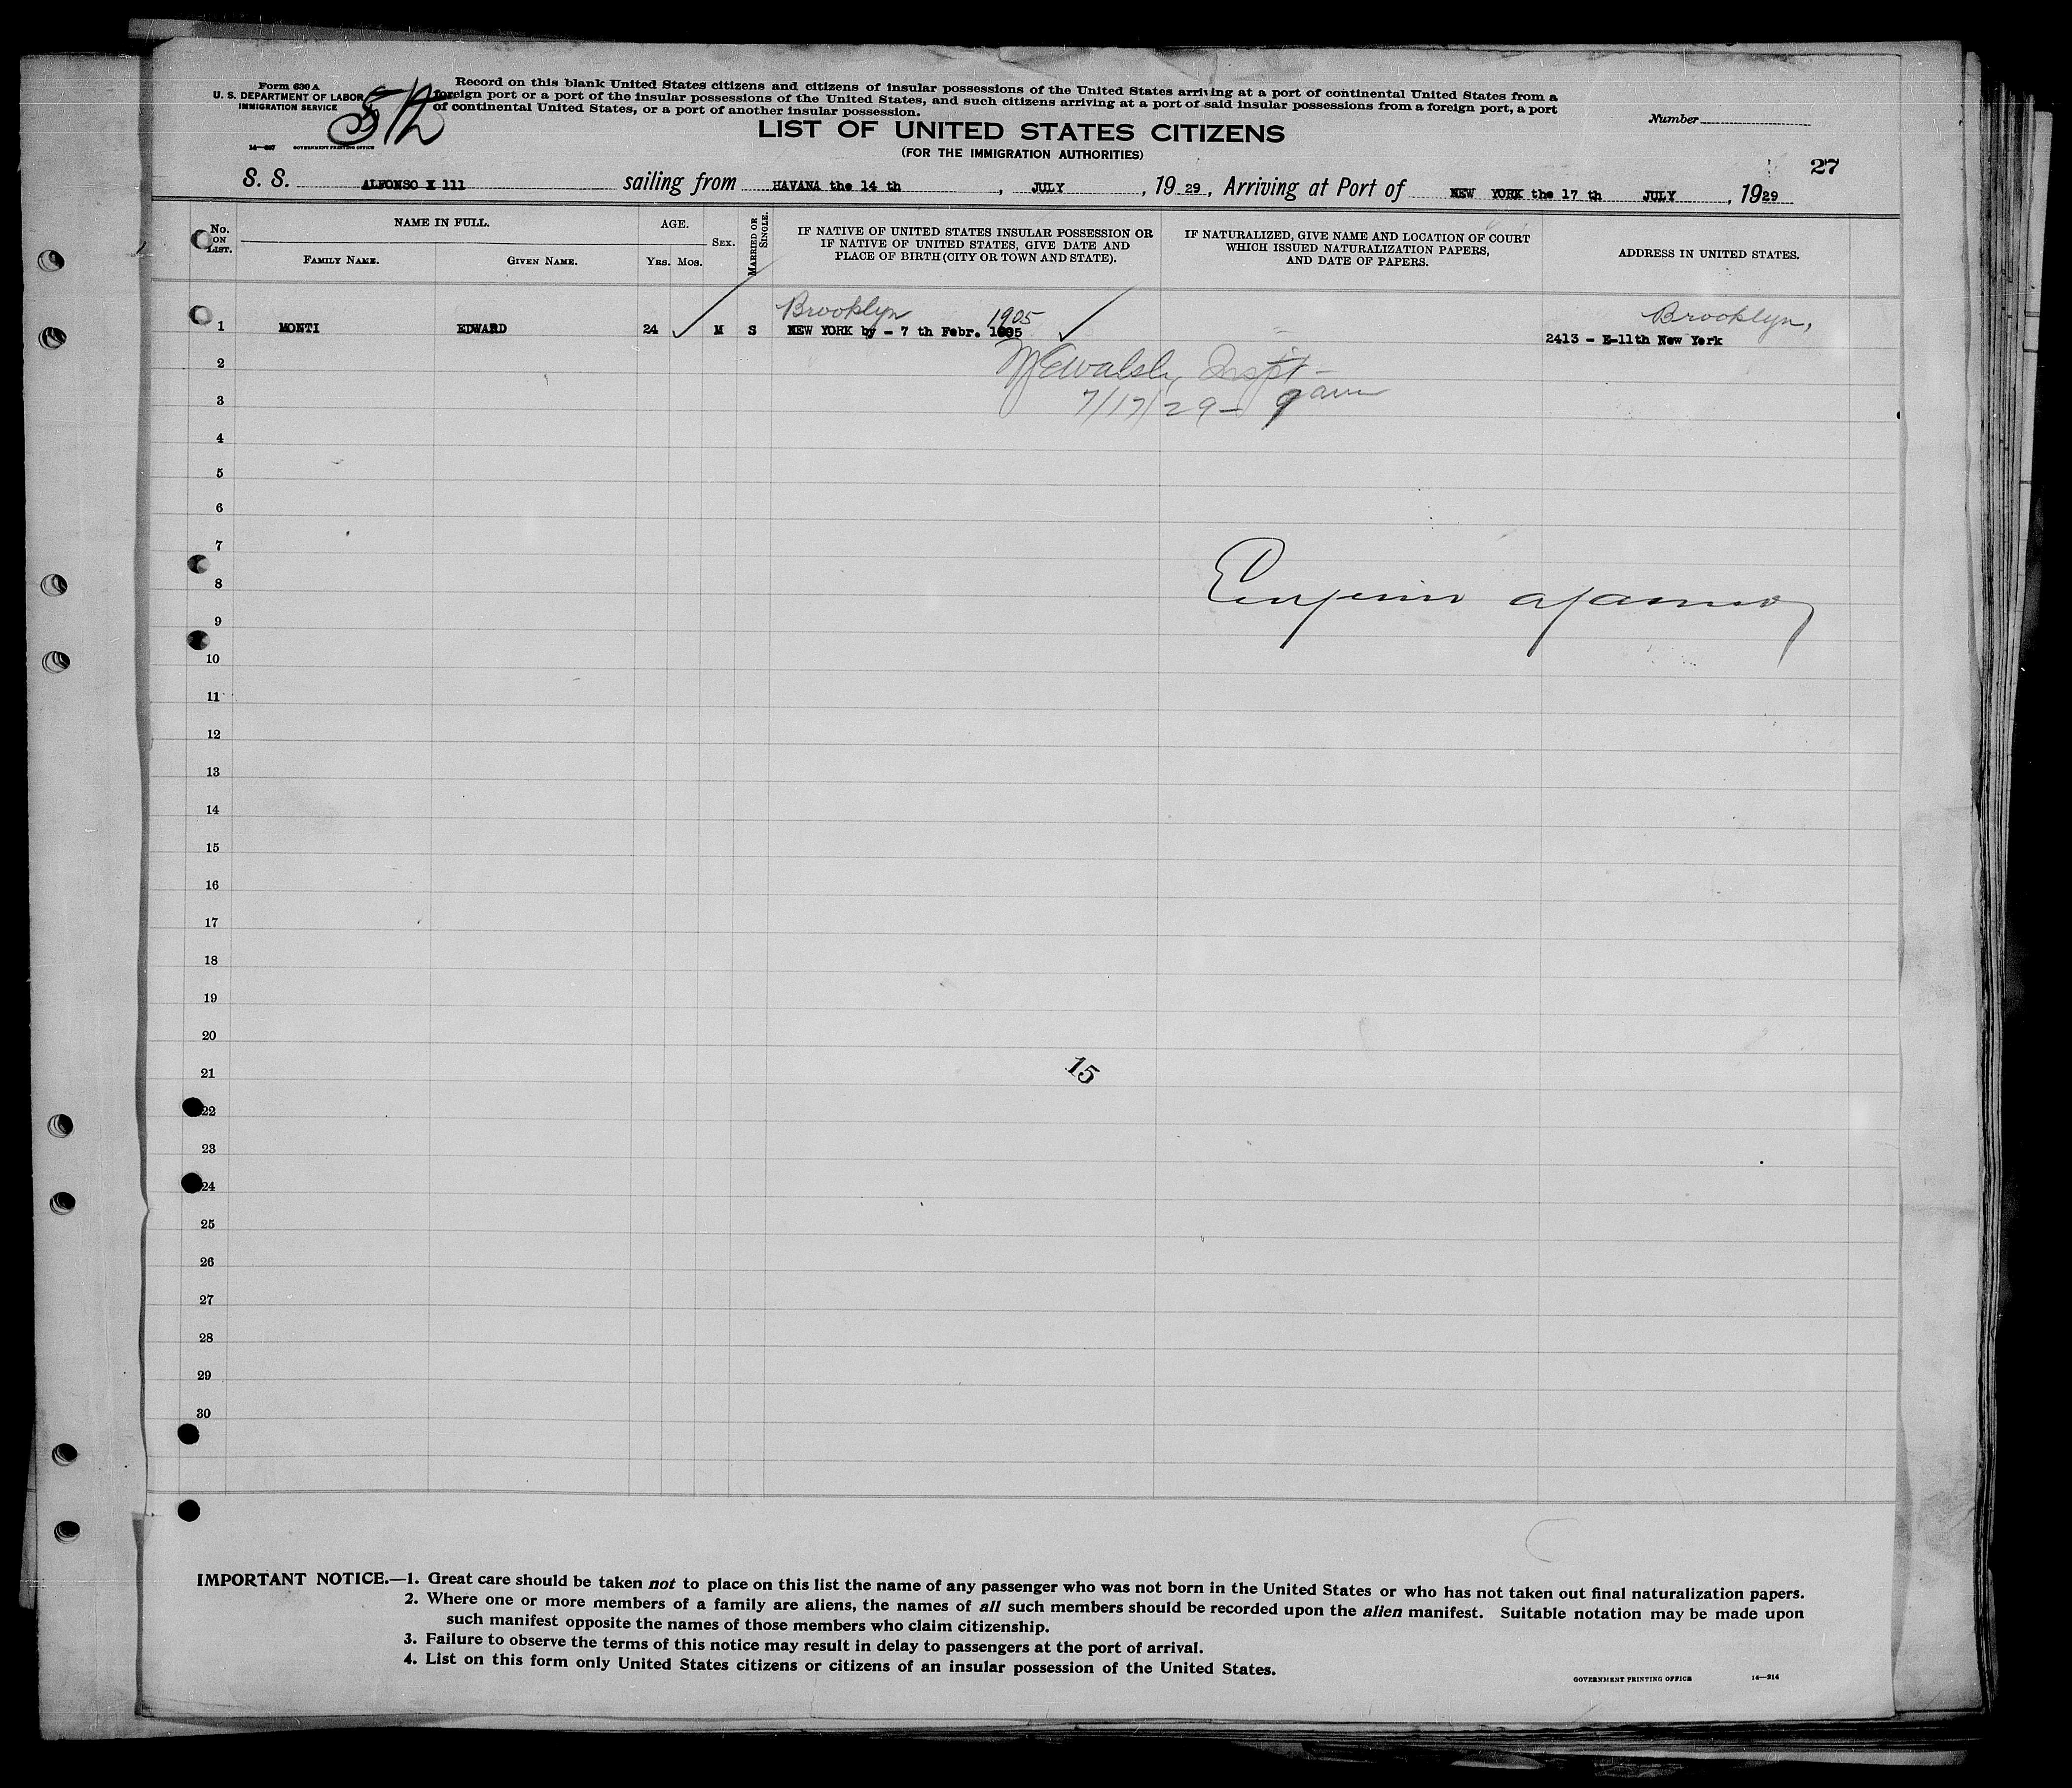 Form 630 A
U. S. DEPARTMENT OF LABOR
IMMIGRATION SERVICE
14—607 GOVERNMENT PRINTING OFFICE
Record on this blank United States citizens and citizens of insular possessions of the United States arriving at a port of continental United States from a
foreign port or a port of the insular possessions of the United States, and such citizens arriving at a port of said insular possessions from a foreign port, a port
of continental United States, or a port of another insular possession.
LIST OF UNITED STATES CITIZENS
(FOR THE IMMIGRATION AUTHORITIES)
Number
27
S. S. ALFONSO X 111 sailing from HAVANA the 14 th, JULY, 1929, Arriving at Port of NEW YORK the 17 th JULY, 1929
No. ON LIST.
NAME IN FULL.
FAMILY NAME. GIVEN NAME.
AGE.
YRS. MOS.
SEX.
MARRIED OR SINGLE.
IF NATIVE OF UNITED STATES INSULAR POSSESSION OR
IF NATIVE OF UNITED STATES, GIVE DATE AND
PLACE OF BIRTH (CITY OR TOWN AND STATE).
IF NATURALIZED, GIVE NAME AND LOCATION OF COURT
WHICH ISSUED NATURALIZATION PAPERS,
AND DATE OF PAPERS.
ADDRESS IN UNITED STATES.
Brooklyn 1905 Brooklyn,
1 MONTI EDWARD 24 M S NEW YORK by - 7 th Febr. 1905 2413 - E-11th New York
2 Walsh, Inspt-
3 7/17/29 - 9 am
4
5
6
7
8
9
10
11
12
13
14
15
16
17
18
19
20
15
21
22
23
24
25
26
27
28
29
30
IMPORTANT NOTICE.—1. Great care should be taken not to place on this list the name of any passenger who was not born in the United States or who has not taken out final naturalization papers.
2. Where one or more members of a family are aliens, the names of all such members should be recorded upon the alien manifest. Suitable notation may be made upon
such manifest opposite the names of those members who claim citizenship.
3. Failure to observe the terms of this notice may result in delay to passengers at the port of arrival.
4. List on this form only United States citizens or citizens of an insular possession of the United States.
GOVERNMENT PRINTING OFFICE 14—914